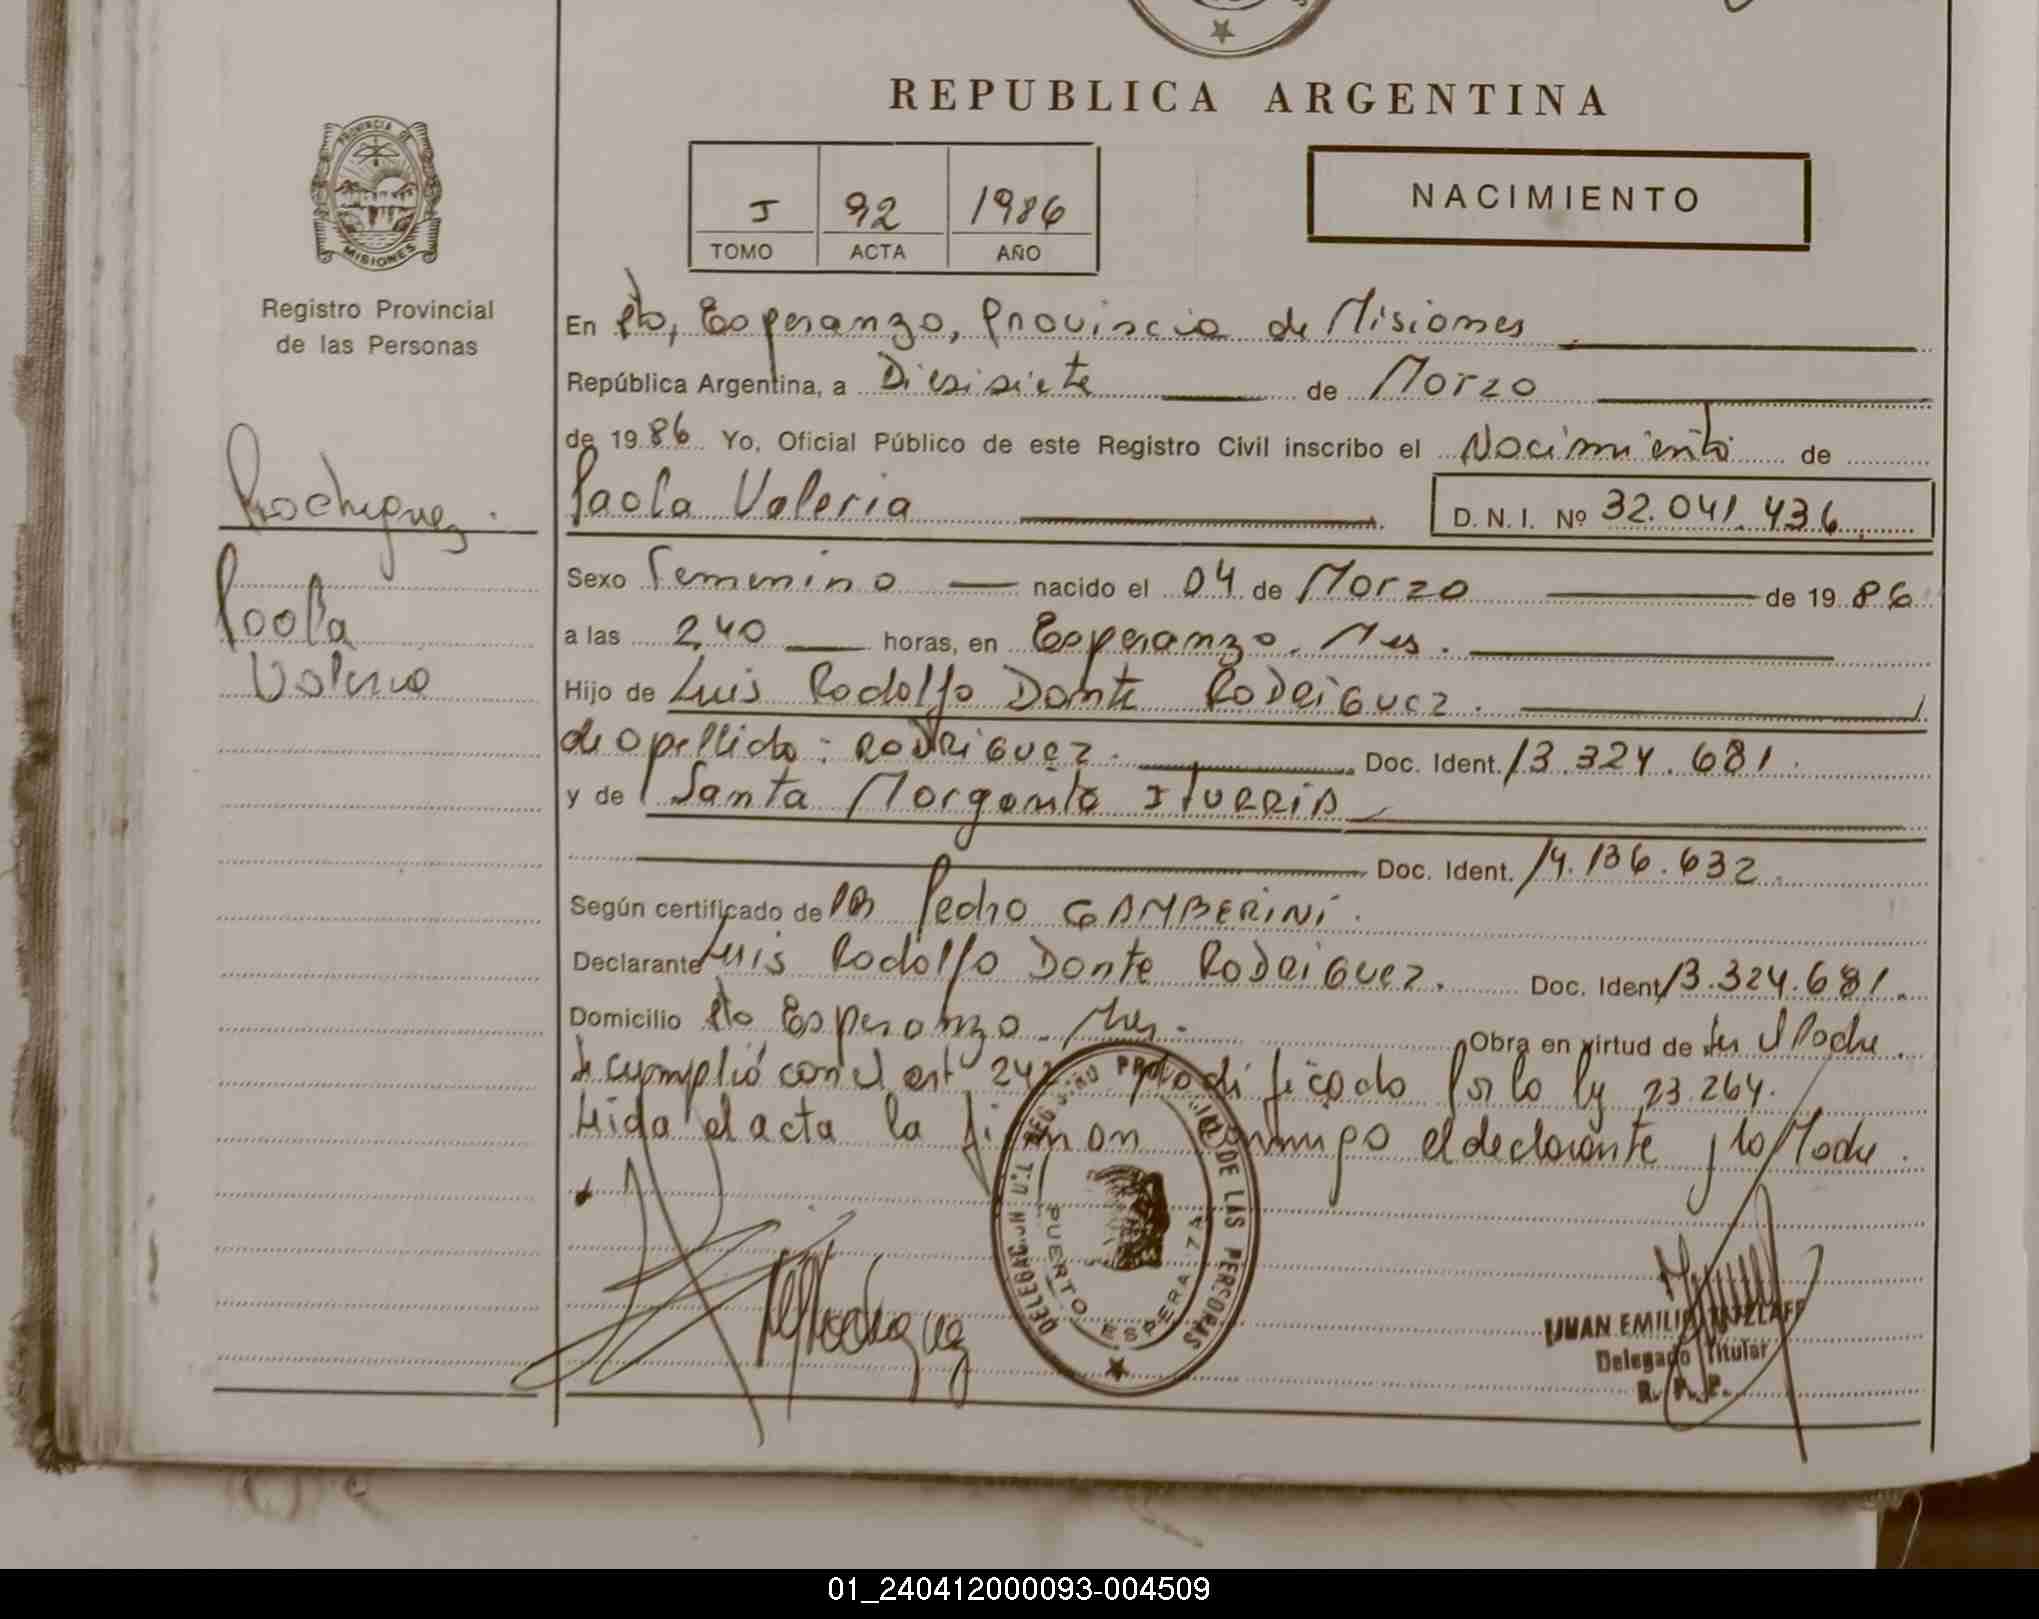 REPUBLICA ARGENTINA
PROVINCIA DE
MISIONES
Registro Provincial
de las Personas
I 92 1986
TOMO ACTA AÑO
NACIMIENTO
En Pto, Esperanza, Provincia de Misiones
República Argentina, a Diesisiete de Marzo
de 1986 Yo, Oficial Público de este Registro Civil inscribo el Nacimiento de
Paola Valeria D.N.I. Nº 32.041.436
Rodriguez.
Paola
Valeria
Sexo Femenino nacido el 04 de Marzo de 1986
a las 2,40 horas, en Esperanza. Mnes.
Hijo de Luis Rodolfo Dante RODRIGUEZ.
de apellido: RODRIGUEZ. Doc. Ident. 13.324.681.
y de Santa Margarita ITURRIA
Doc. Ident. 14.136.632.
Según certificado de Pedro GAMBERINI.
Declarante Luis Rodolfo Dante RODRIGUEZ. Doc. Ident 13.324.681.
Domicilio Pto Esperanza. Mnes. Obra en virtud de ser el Padre.
Se cumplió con el art 242 modificado por la ley 23.264.
Leida el acta la firman conmigo el declarante y la Madre.
REGISTRO PROVINCIAL DE LAS PERSONAS
DELEGACION
PUERTO ESPERANZA
Rodriguez
JUAN EMILIO
Delegado Titular
R. P. P.
01_240412000093-004509